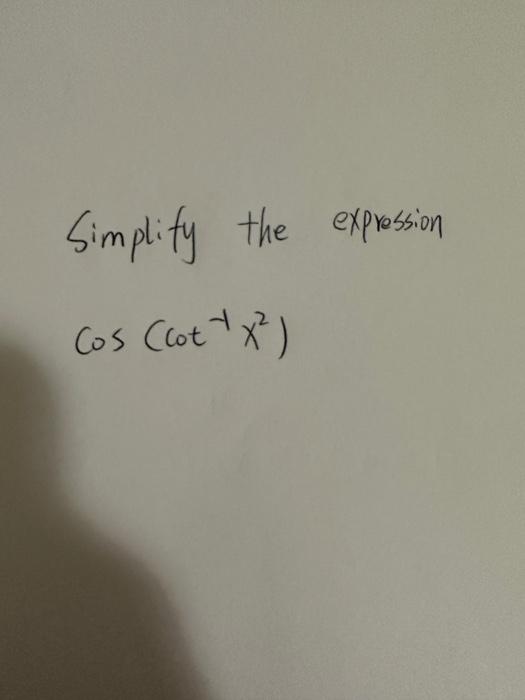 Simplify the expression
cos (cot⁻¹ x²)